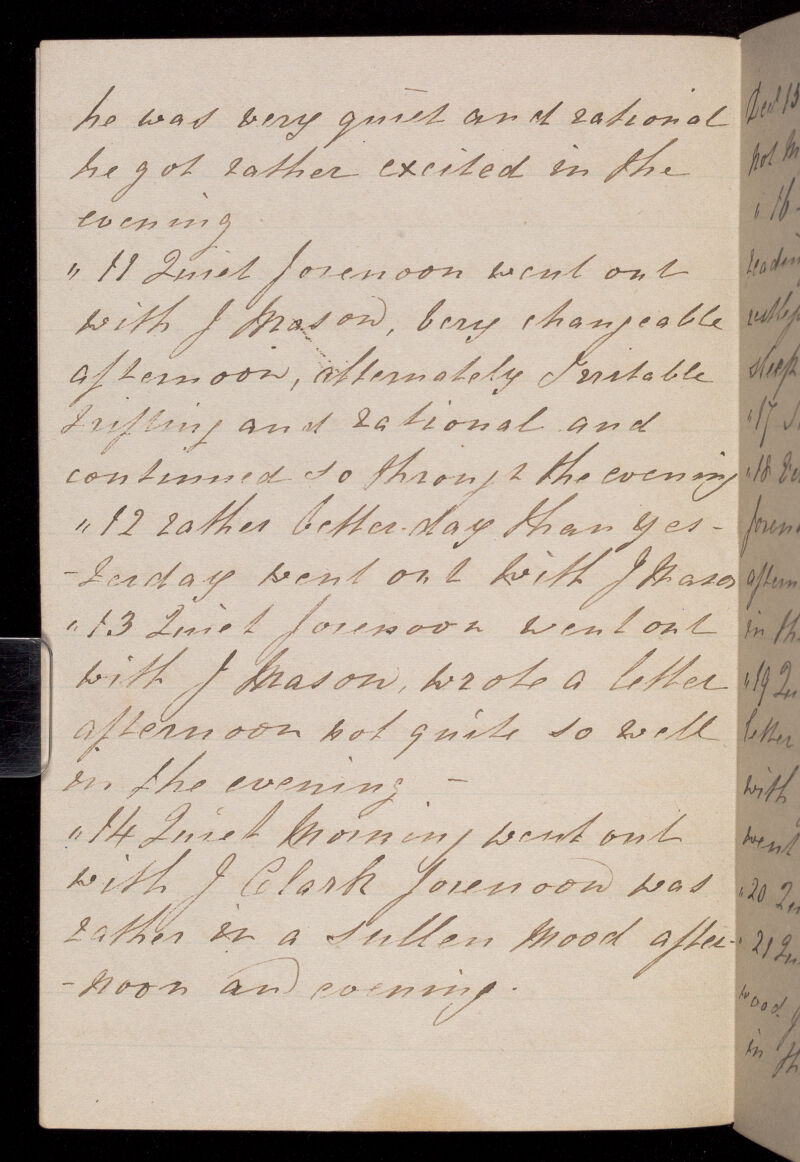 he was very quiet and rational
he got rather excited in the
evening
" 11 Quiet forenoon went out
with J Mason, Very changeable
afternoon, alternately Irritable
trifling and rational and
continued so through the evening
" 12 rather better day than yes-
-terday went out with J Mason
" 13 Quiet forenoon went out
with J Mason, wrote a letter
afternoon not quite so well
in the evening -
" 14 Quiet Morning went out
with J Clark forenoon was
rather in a sullen mood after-
-noon and evening.
Dec 15
not
" 16
sleep
" 17
" 18
in the
" 19
letter
with
went
" 20
" 21
in